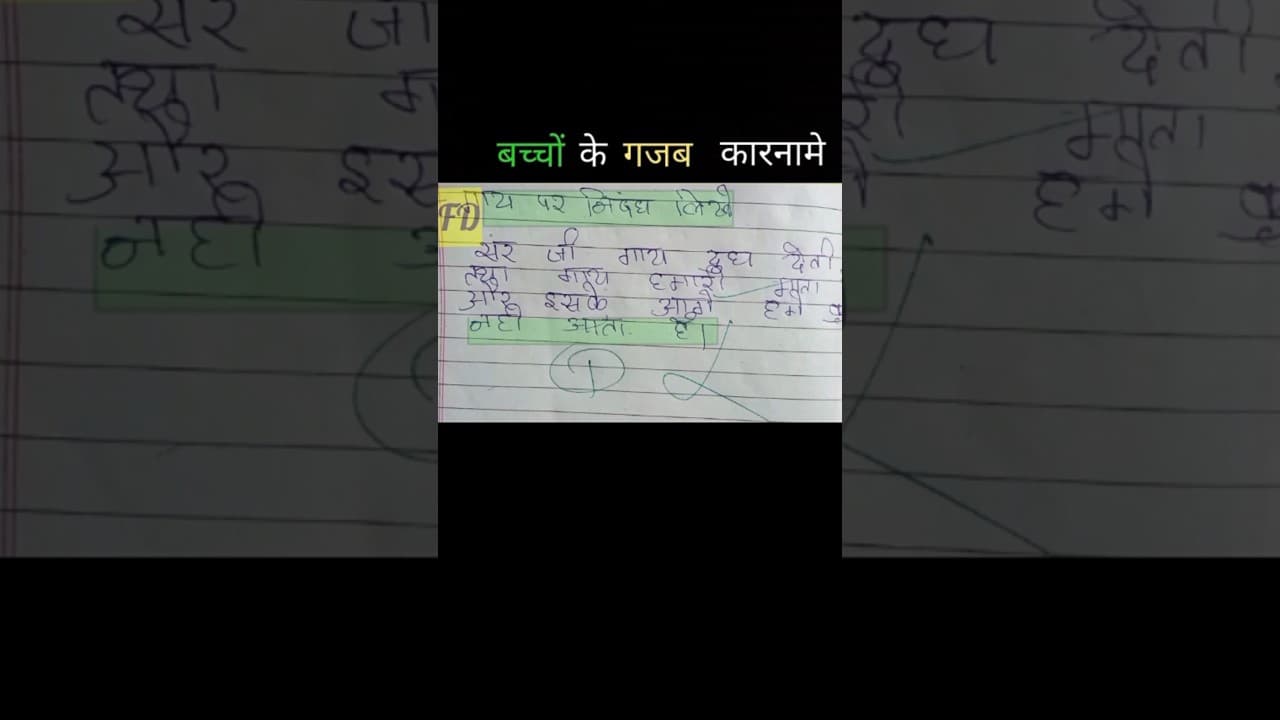 बच्चों के गजब कारनामे
FD
गाय पर निबंध लिखे
सर जी गाय दुध देती
तथा गाय हमारी
और इसके आगे हमे
नही आता है।
1